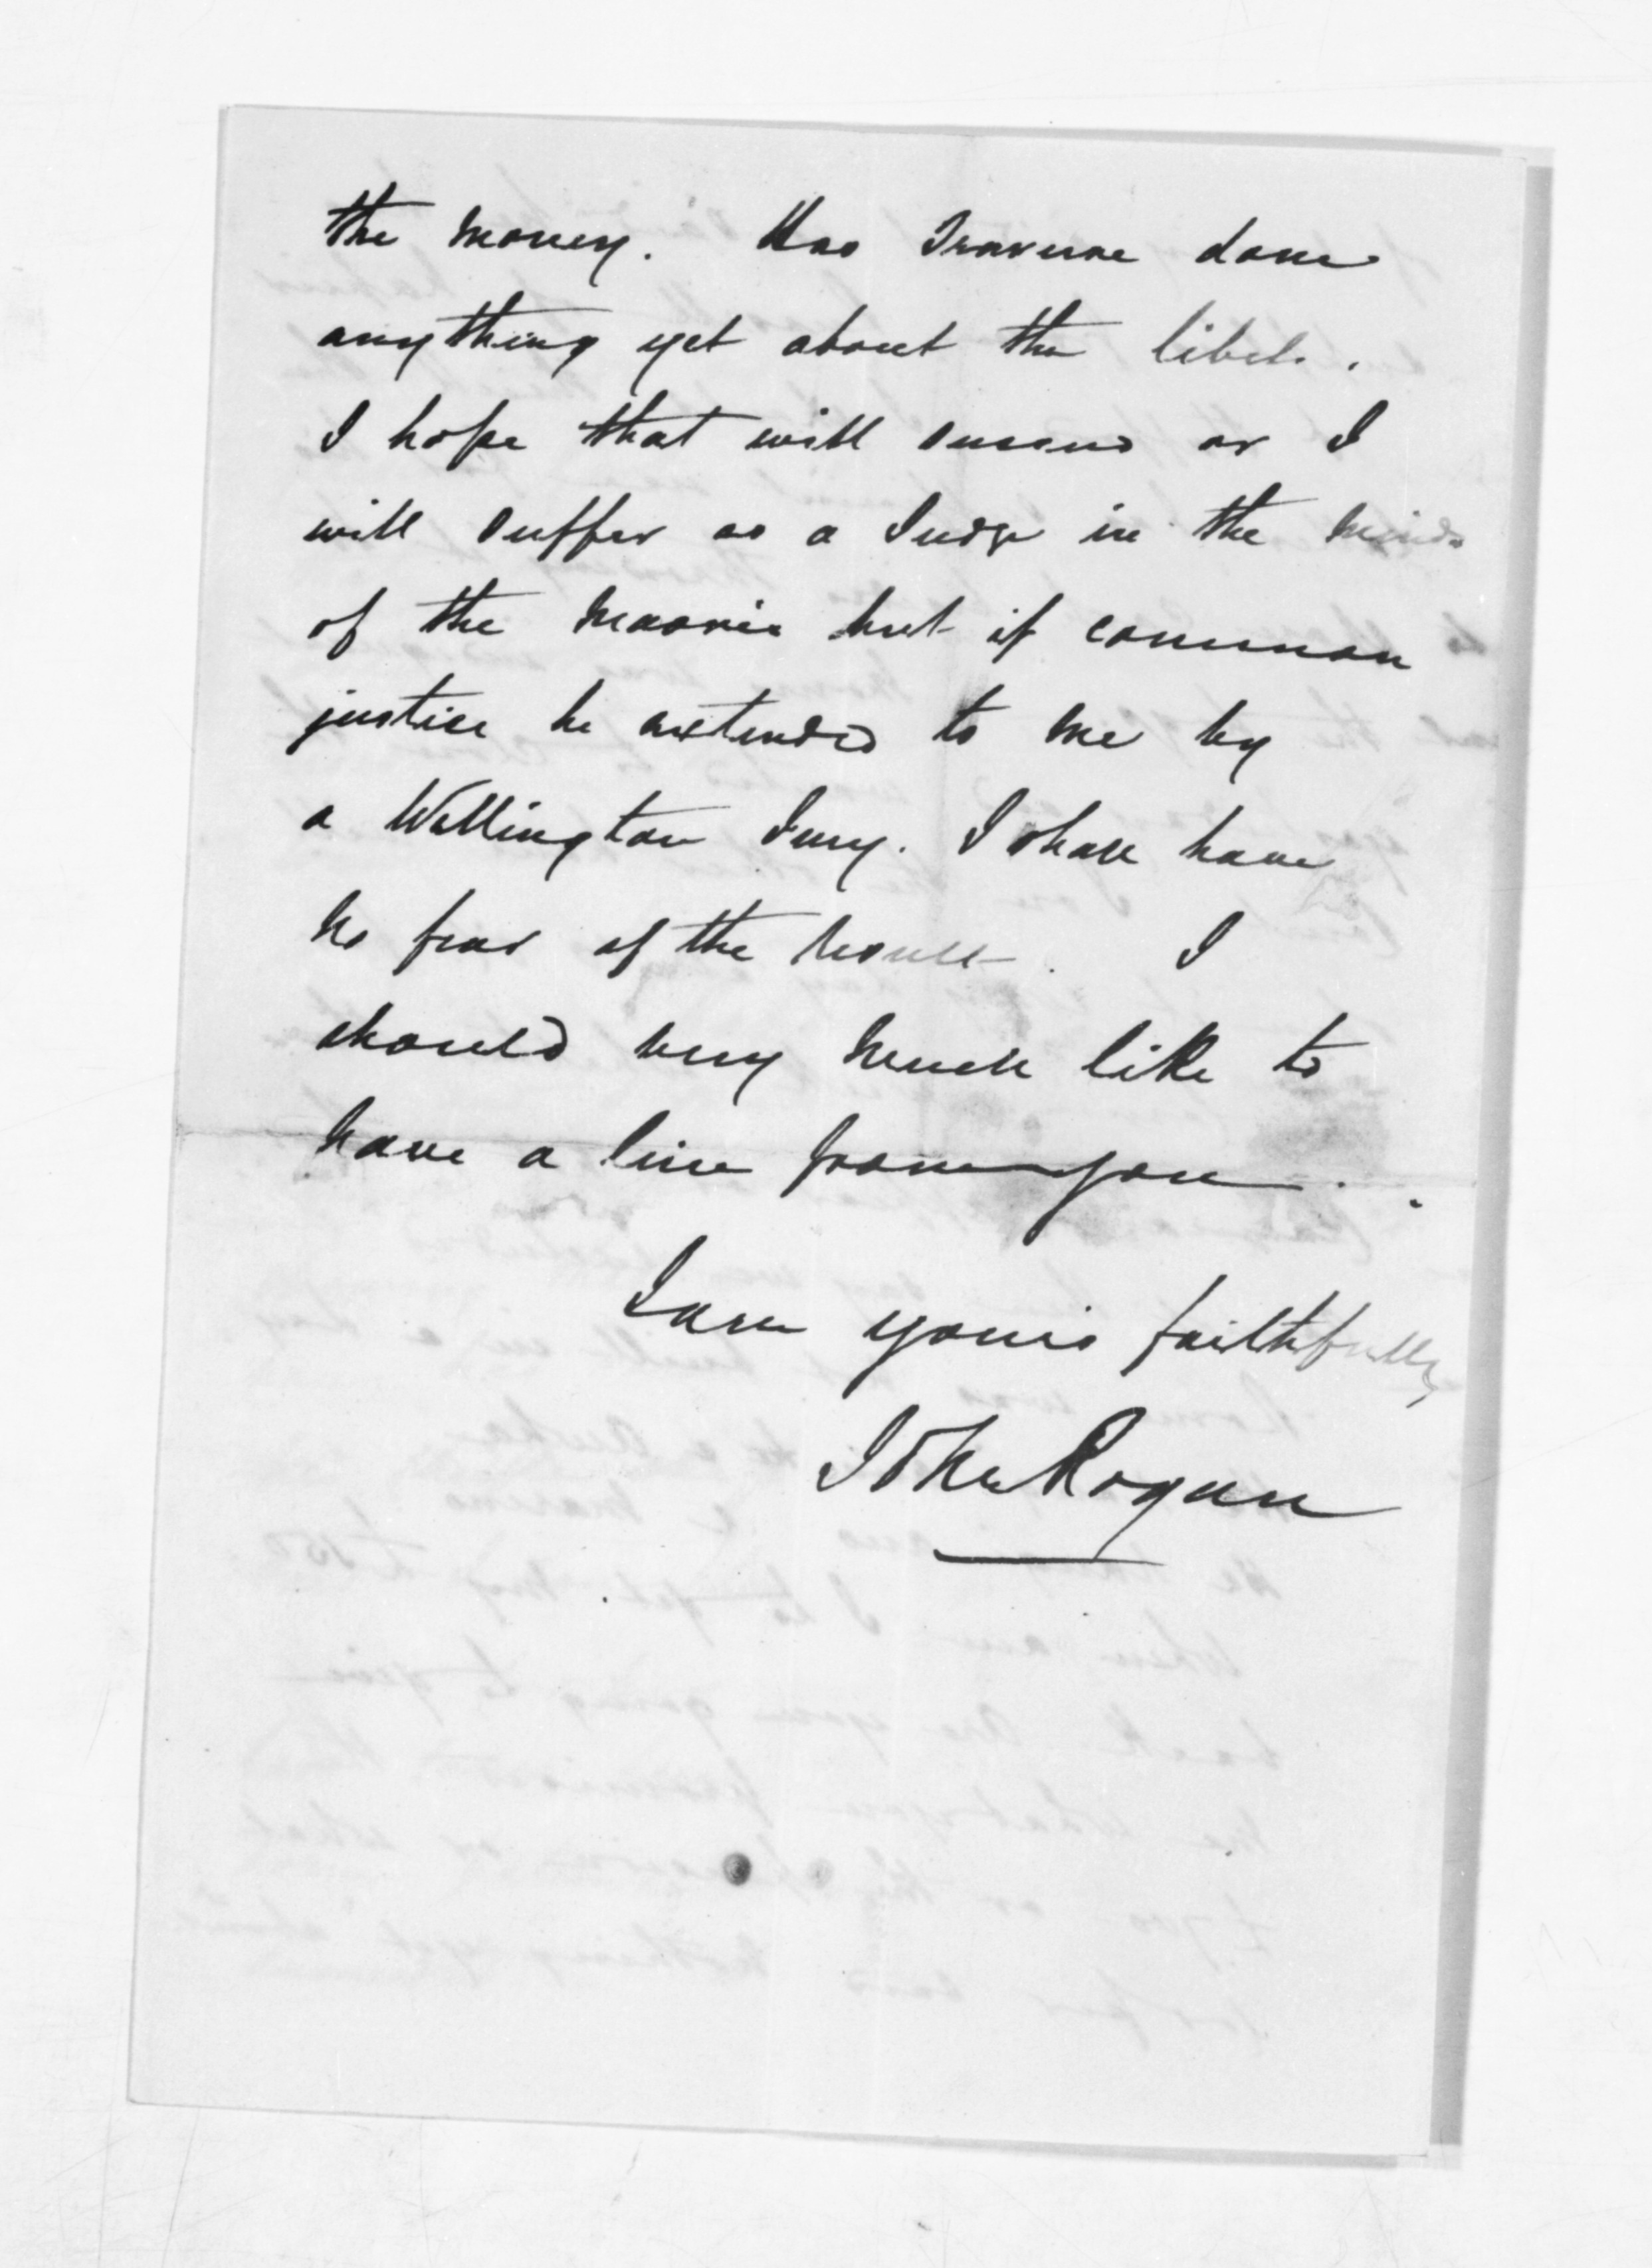 the money. Has Traverse done
anything yet about the libel.
I hope that will succeed or I
will suffer as a Judge in the minds
of the Maories but if common
justice be extended to me by
a Wellington Jury. I shall have
no fear of the result. I
should very much like to
have a line from you.
I am yours faithfully
John Rogan